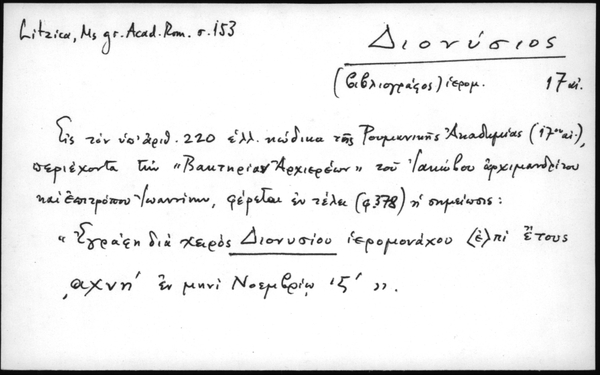 Litzica, Ms gr. Acad. Rom. σ. 153
Διονύσιος
(βιβλιογράφος) ἱερομ. 17 αἰ.
Εἰς τὸν ὑπ' ἀριθ. 220 ἑλλ. κώδικα τῆς Ρουμανικῆς Ἀκαδημίας (17ου αἰ.),
περιέχοντα τὴν «Βακτηρίαν Ἀρχιερέων» τοῦ Ἰακώβου ἀρχιμανδρίτου
καὶ ἐπιτρόπου Ἰωαννίνων, φέρεται ἐν τέλει (φ. 378) ἡ σημείωσις:
«Ἐγράφη διὰ χειρὸς Διονυσίου ἱερομονάχου <ἐ>πὶ ἔτους
͵αχνη΄ ἐν μηνὶ Νοεμβρίῳ ιζ΄».